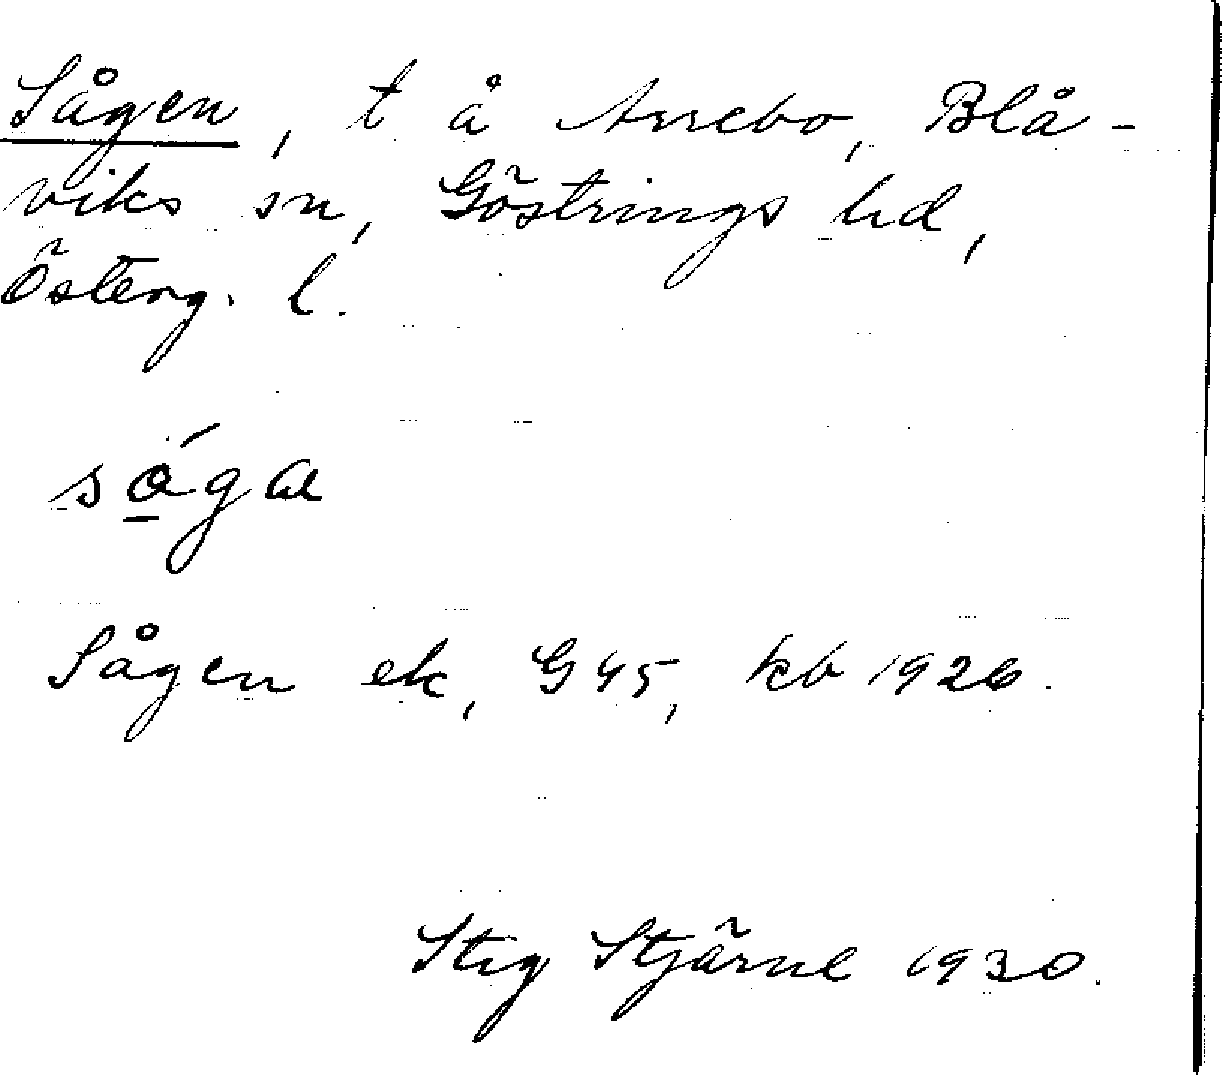 Sågen, t å Arrebo, Blå-
viks sn, Göstrings hd,
Österg. l.
sǻ̱ga
Sågen ek, G 45, kb 1926.
Stig Stjärne 1930.